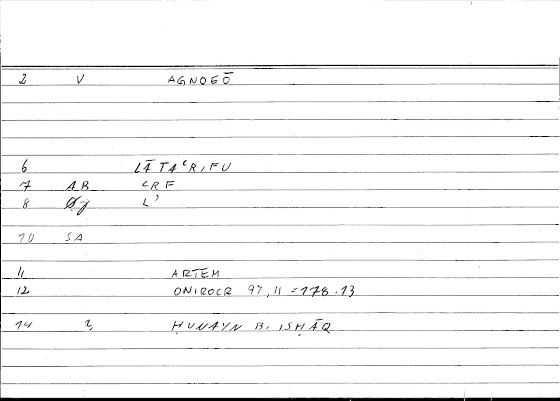 2 V AGNOEŌ
6 LĀ TAʿRIFU
7 AB ʿRF
8 Øj Lʾ
10 SA
11 ARTEM
12 ONIROCR 97,11 = 178.13
14 ḤUNAYN B. ISḤĀQ